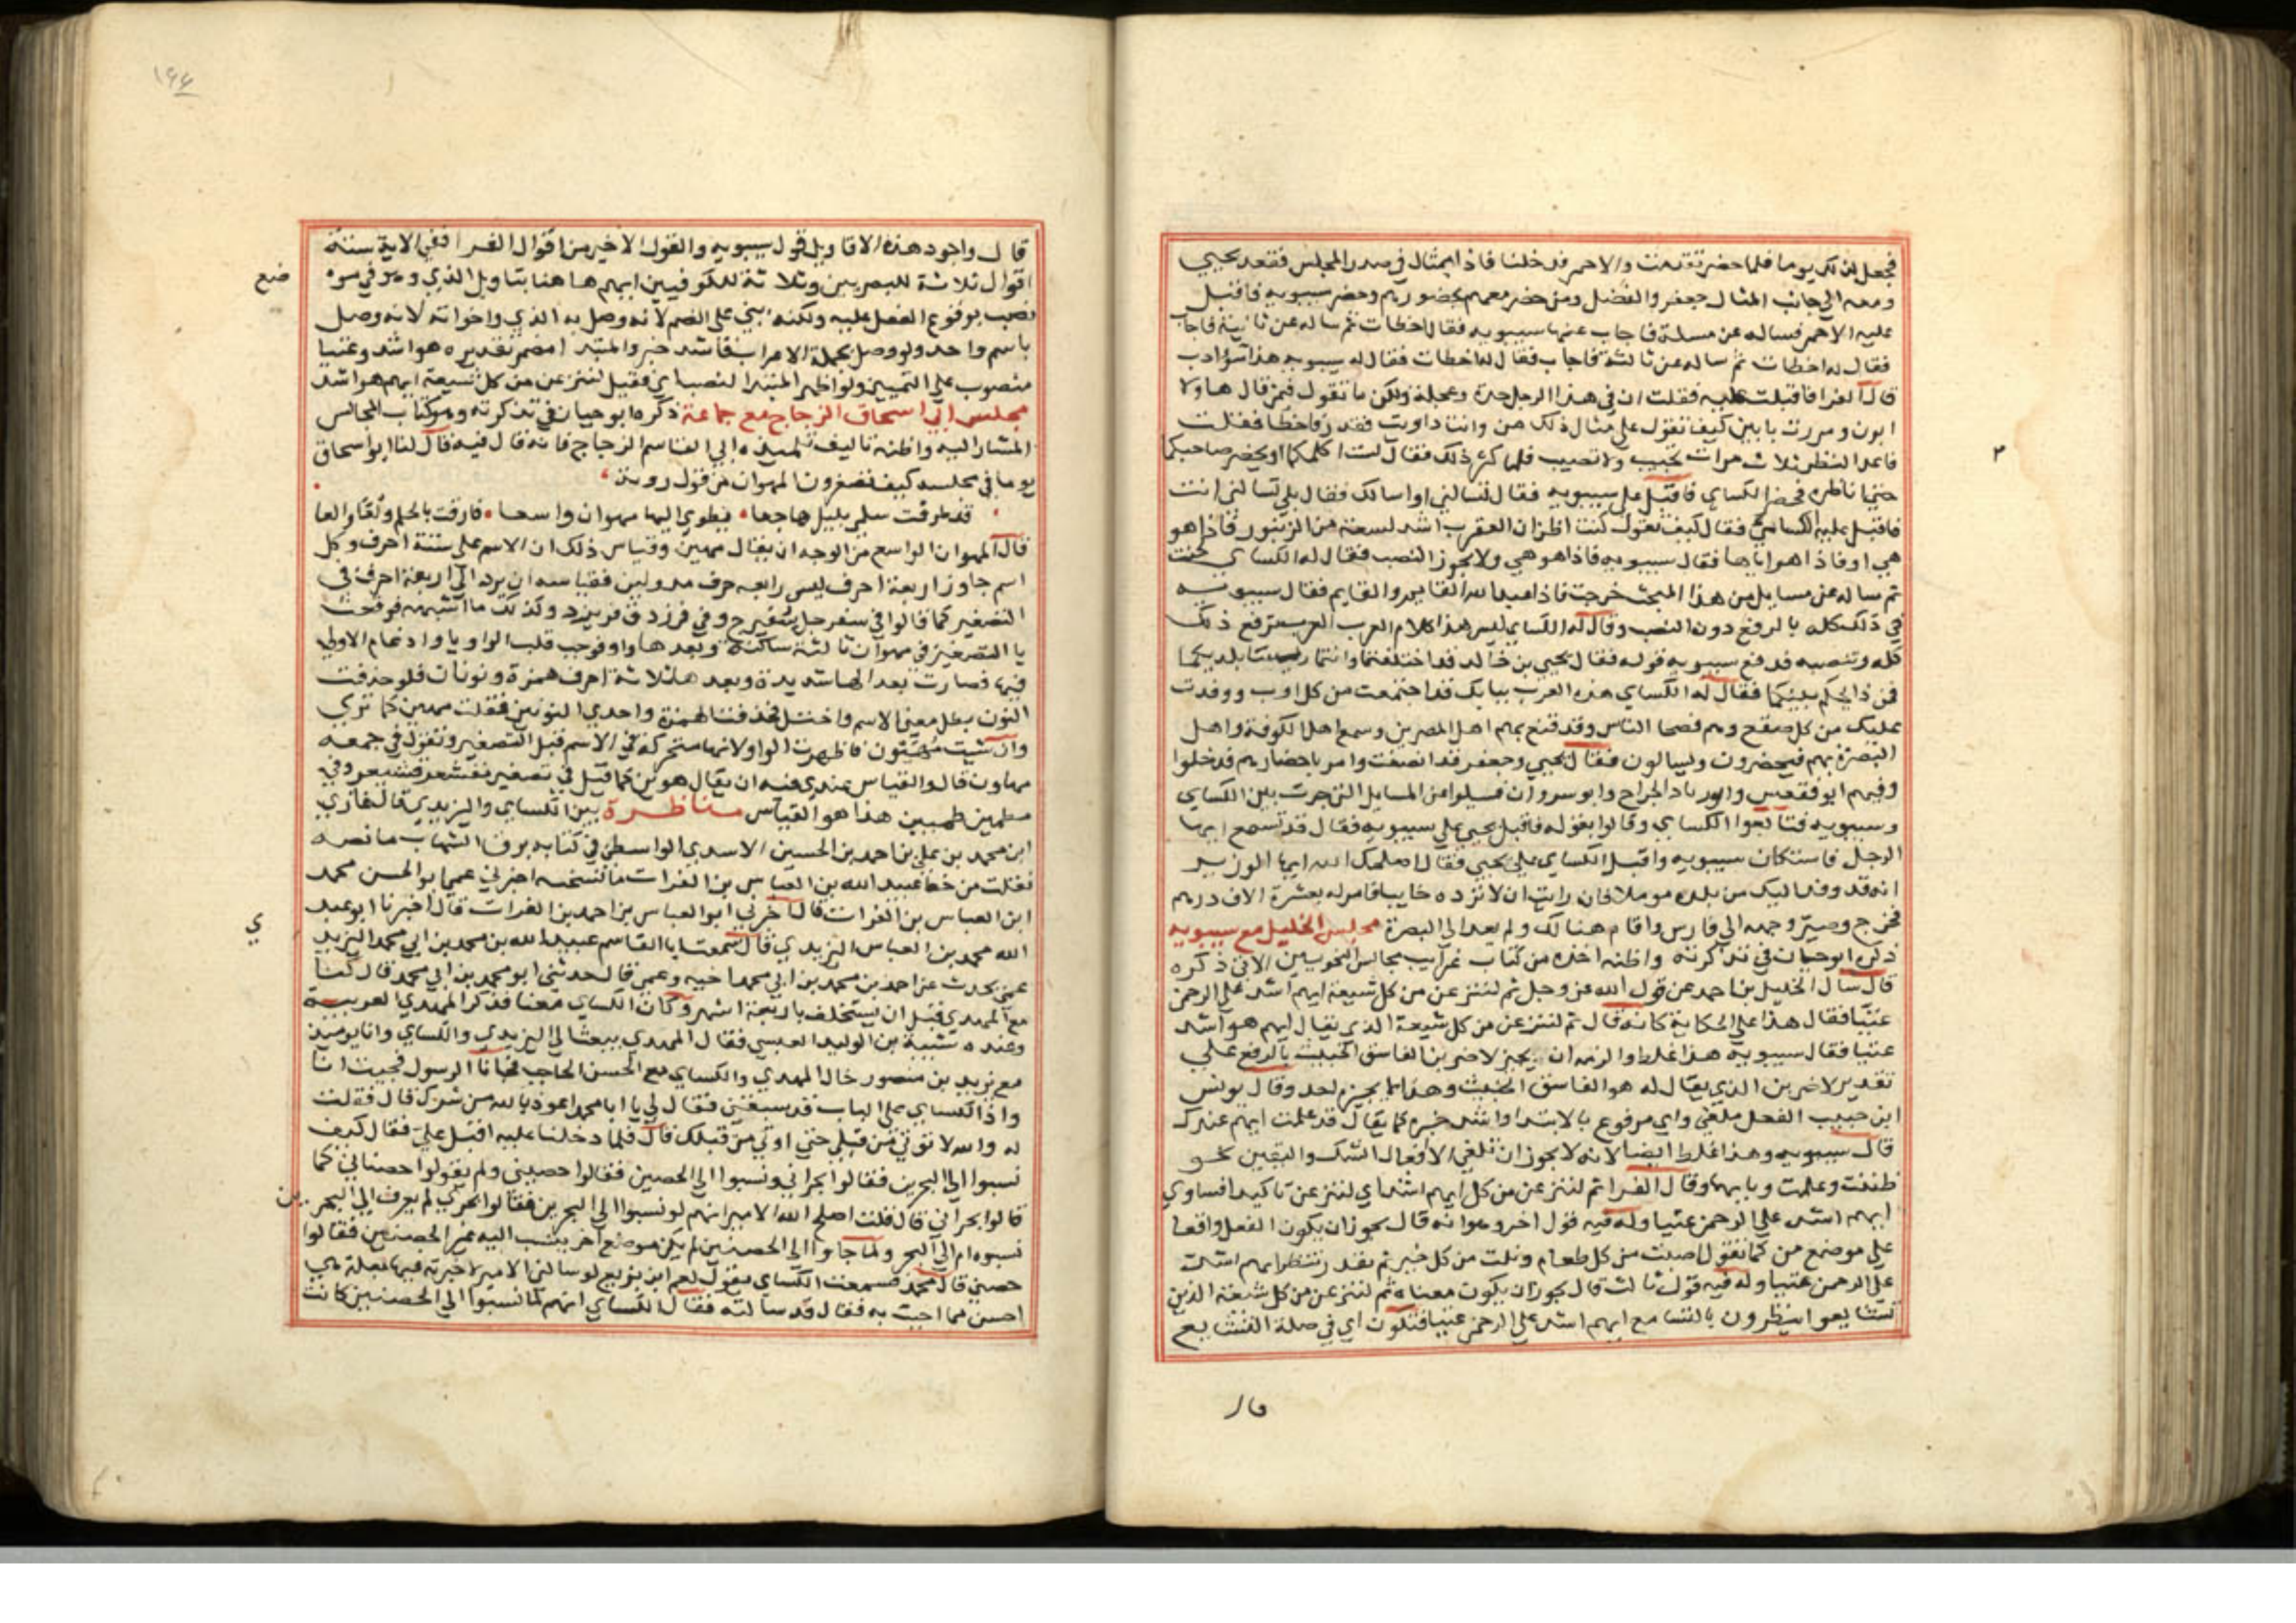 فجعل لذلك يوما فلما حضر تقدمت والاحمر فدخلنا فاذا بمثال في صدر المجلس فقعد يحيي
ومعه الي جانب المثال جعفر والفضل ومن حضر معهم بحضورهم وحضر سيبويه فاقبل
عليه الاحمر فساله عن مسلة فاجاب عنها سيبويه فقال اخطات ثم ساله عن ثانية فاجاب
فقال له اخطات ثم ساله عن ثالثة فاجاب فقال له اخطات فقال له سيبويه هذا سؤ ادب
قال الفرا فاقبلت عليه فقلت ان في هذا الرجل حدة وعجلة ولكن ما تقول فيمن قال هاولا
ابون ومررت بابين كيف تقول علي مثال ذلك من وايت واويت فقدر فاخطا فقلت
فاعد النظر ثلاث مرات يجيب ولا تصيب فلما كثر ذلك فقال لست اكلمكما او يحضر صاحبكما
حتي اناظره فحضر الكساي فاقبل علي سيبويه فقال تسالني او اسالك فقال بلي تسالني انت
فاقبل عليه الكساي فقال كيف تقول كنت اظن ان العقرب اشد لسعة من الزنبور فاذا هو
هي او فاذا هو اياها فقال سيبويه فاذا هو هي ولا يجوز النصب فقال له الكساي لحنت
ثم ساله عن مسايل من هذا المبحث خرجت فاذا عبد الله القايم والقايم فقال سيبويه
في ذلك كله بالرفع دون النصب وقال له الكساي ليس هذا كلام العرب العرب ترفع ذلك
كله وتنصبه فدفع سيبويه قوله فقال يحيي بن خالد قد اختلفتما وانتما رييسا بلديكما
فمن ذا يحكم بينكما فقال له الكساي هذه العرب ببابك قد اجتمعت من كل اوب ووفدت
عليك من كل صقع وهم فصحا الناس وقد قنع بهم اهل المصرين وسمع اهل الكوفة واهل
البصرة بهم فيحضرون ويسالون فقال يحيي وجعفر قد انصفت وامر باحضارهم فدخلوا
وفيهم ابو فقعس وابو زياد الجراح وابو سروان فسيلوا عن المسايل التي جرت بين الكساي
وسيبويه فتابعوا الكساي وقالوا بقوله فاقبل يحيي علي سيبويه فقال قد تسمع ايها
الرجل فاستكان سيبويه واقبل الكساي علي يحيي فقال اصلحك الله ايها الوزير
انه قد وفد اليك من بلده موملا فان رايت ان لا ترده خايبا فامر له بعشرة الاف درهم
فخرج وصير وجهه الي فارس واقام هنالك ولم يعد الي البصرة مجلس الخليل مع سيبويه
ذكره ابو حيان في تذكرته واظنه اخذه من كتاب غرايب مجالس النحويين الاتي ذكره
قال سال الخليل بن احمد عن قول الله عز وجل ثم لننزعن من كل شيعة ايهم اشد علي الرحمن
عتيا فقال هذا علي الحكاية كانه قال ثم لننزعن من كل شيعة الذي يقال ايهم هو اشد
عتيا فقال سيبويه هذا غلط والزمه ان يجيز لاضربن الفاسق الخبيث بالرفع علي
تقدير لاضربن الذي يقال له هو الفاسق الخبيث وهذا لا يجيزه احد وقال يونس
ابن حبيب الفعل ملغي واي مرفوع بالابتدا واشد خبره كما يقال قد علمت ايهم عندك
قال سيبويه وهذا غلط ايضا لانه لا يجوز ان تلغي الا افعال الشك واليقين نحو
ظننت وعلمت وبابهما وقال الفرا ثم لننزعن من كل ايهم اشد اي لننزعن تاكيد افساوي
ايهم اشد علي الرحمن عتيا وله فيه قول اخر وهو انه قال يجوز ان يكون الفعل واقعا
علي موضع من كما تقول اصبت من كل طعام ونلت من كل خير ثم تقدر ننظر ايهم اشد
علي الرحمن عتيا وله فيه قول ثالث قال يجوز ان يكون معناه ثم لننزعن من كل شيعة الذين
تشايعوا ينظرون بالتشايع ايهم اشد علي الرحمن عتيا فتكون اي في صلة التشايع
٣
قال
١٤٤
قال واجود هذه الاقاويل قول سيبويه والقول الاخير من اقوال الفرا ففي الاية ستة
اقوال ثلاثة للبصريين وثلاثة للكوفيين ايهم هاهنا بتاويل الذي وهو في موه
ضع
نصب بوقوع الفعل عليه ولكنه بني علي الضم لانه وصل به الذي واخواته لانه وصل
باسم واحد ولو وصل بجملة الاعراب فاشد خبر والمبتدا مضمر تقديره هو اشد وعتيا
منصوب علي التمييز ولو اظهر المبتدا لنصب اي فقيل لننزعن من كل شيعة ايهم هو اشد
مجلس ابي اسحاق الزجاج مع جماعة ذكره ابو حيان في تذكرته وهو كتاب المجالس
المشار اليه واظنه تاليف تلميذه ابي القاسم الزجاج فانه قال فيه قال لنا ابو اسحاق
يوما في مجلسه كيف تصغرون المهوان من قول روبة
قد طرقت سلمي بليل هاجعا • يطوي اليها مهوان واسعا • فارقت بالحلم ولعا والعا
قال المهوان الواسع من الوجه ان يقال مهين وقياس ذلك ان الاسم علي ستة احرف وكل
اسم جاوز اربعة احرف ليس رابعه حرف مد ولين فقياسه ان يرد الي اربعة احرف في
التصغير كما قالوا في سفرجل سفيرج وفي فرزدق فريزد وكذلك ما اشبهه فوقعت
يا التصغير في مهوان ثالثة ساكنة وبعدها واو فوجب قلب الواو يا وادغام الاولي
فيها فصارت بعد الها شديدة وبعدها ثلاثة احرف همزة ونونان فلو حذفت
النون بطل معني الاسم واختل فحذفنا الهمزة واحدي النونين فقلت مهين كما تري
وان شيت مهيون فاظهرت الواو لانها متحركة في الاسم قبل التصغير وتقول في جمعه
مهاون قال والقياس عندي فيه ان يقال هوين كما قيل في تصغير مقشعر قشيعر وفي
مطمين طميين هذا هو القياس مناظرة بين الكساي واليزيدي قال غازي
ابن محمد بن علي بن احمد بن الحسين الاسدي الواسطي في كتابه برق الشهاب ما نصه
نقلت من خط عبيد الله بن العباس بن الفرات ما نسخته اخبرني عمي ابو الحسن محمد
ابن العباس بن الفرات قال اخبرني ابو العباس بن احمد بن الفرات قال اخبرنا ابو عبد
الله محمد بن العباس اليزيدي قال سمعت ابا القاسم عبيد الله بن محمد بن ابي محمد اليزيد
ي
عمي يحدث عن احمد بن محمد بن ابي محمد اخيه وعمي قال حدثني ابو محمد بن ابي محمد قال كنا
مع المهدي قبل ان يستخلف باربعة اشهر وكان الكساي معنا فذكر المهدي العربية
وعنده شيبة بن الوليد العبسي فقال المهدي يبعث الي اليزيدي والكساي وانا يوميذ
مع يزيد بن منصور خال المهدي والكساي مع الحسن الحاجب فجانا الرسول فجيت انا
واذا الكساي علي الباب قد سبقني فقال لي يا ابا محمد اعوذ بالله من شرك قال فقلت
له والله لا توتي من قبلي حتي اوتي من قبلك قال فلما دخلنا عليه اقبل علي فقال كيف
نسبوا الي البحرين فقالوا بحراني ونسبوا الي الحصنين فقالوا حصني ولم يقولوا حصناني كما
قالوا بحراني قال قلت اصلح الله الامير انهم لو نسبوا الي البحرين فقالوا بحري لم يعرف الي البحر ين
نسبوه ام الي البحر ولما جاوا الي الحصنين لم يكن موضع اخر ينسب اليه غير الحصنين فقالوا
حصني قال محمد فسمعت الكساي يقول لعمر ابن بزيع لو سالني الامير لاخبرته فيها بعلة هي
احسن مما اجبت به فقال قد سالته فقال الكساي انهم لما نسبوا الي الحصنين كانت